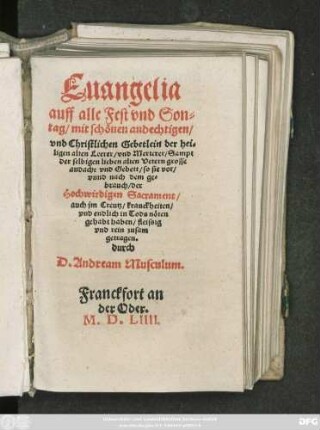 Euangelia
auff alle Fest vnd Son-
tag/ mit schönen andechtigen/
vnd Christlichen Gebetlein der hei-
ligen alten Lerer/ vnd Merterer/ Sampt
der selbigen lieben alten Vetern grosse
andacht vnd Gebett/ so sie vor/
vnnd nach dem ge-
brauch/ der
Hochwirdigen Sacrament/
auch jm Creutz/ kranckheiten/
vnd endlich in Tods nöten
gehabt haben/ fleissig
vnd rein zusam
getragen.
durch
D. Andream Musculum.
Franckfort an
der Oder.
M. D. LIIII.
DFG